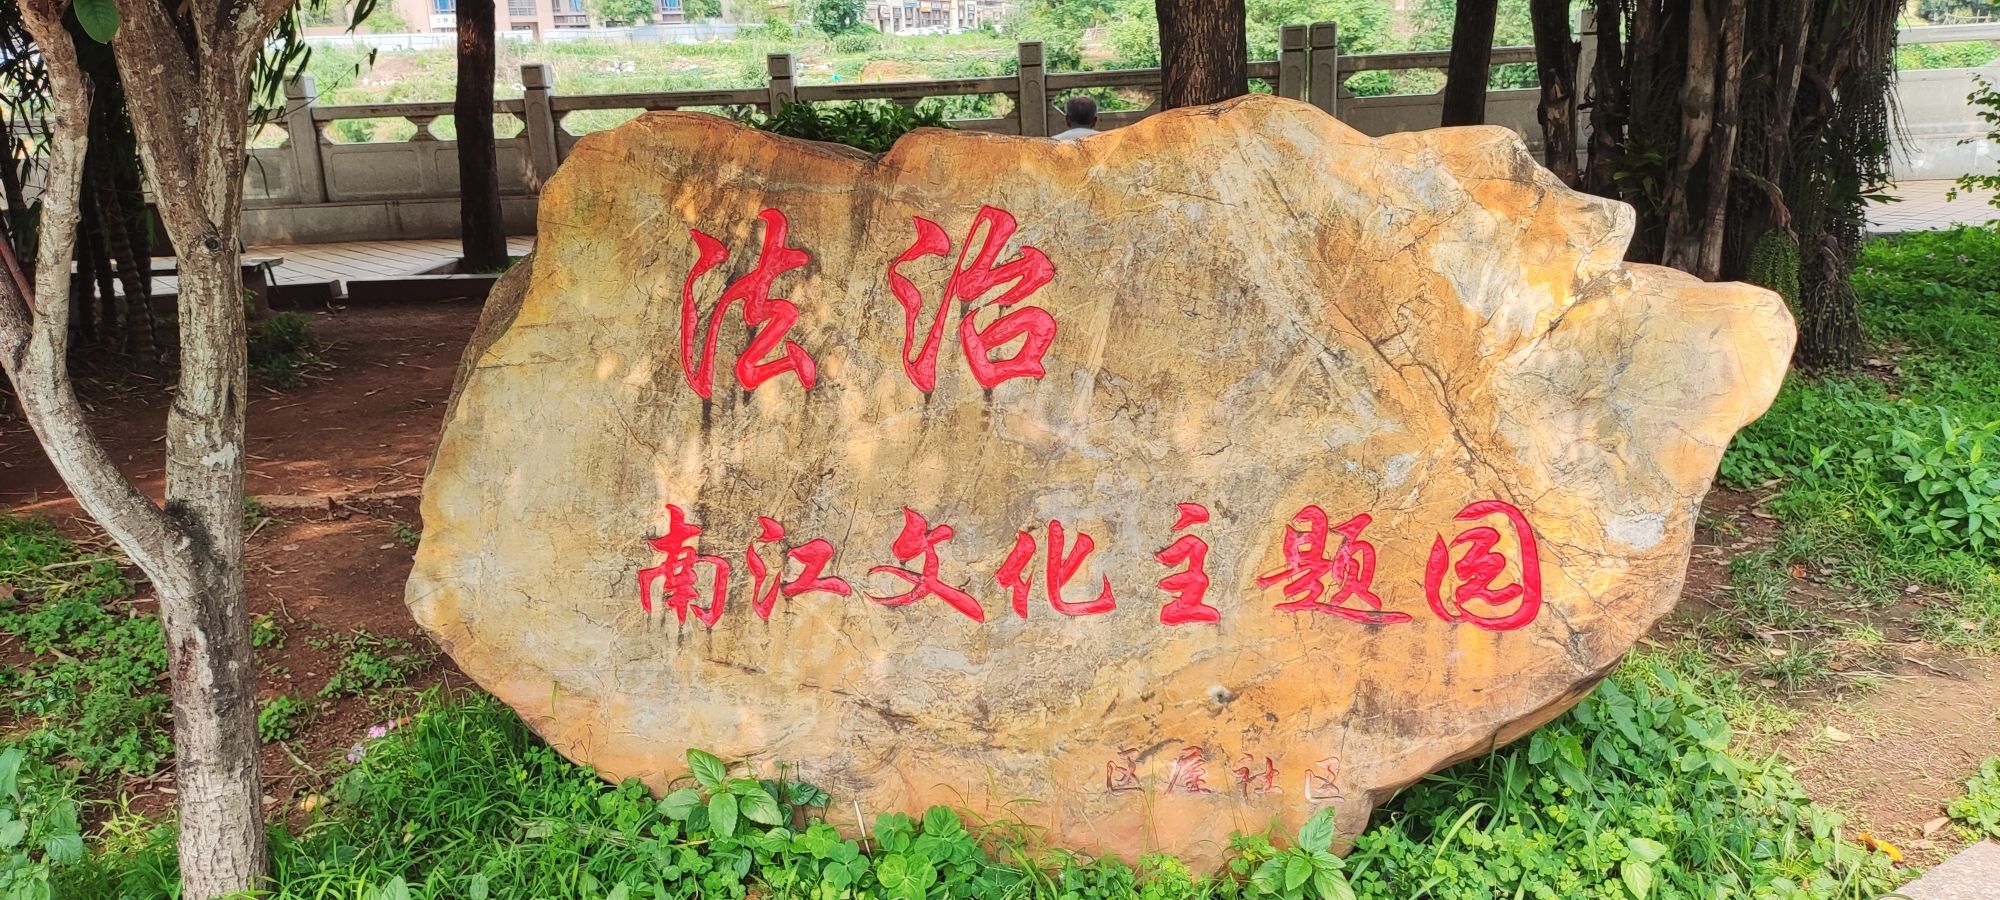 法治
南江文化主题园
区屋社区